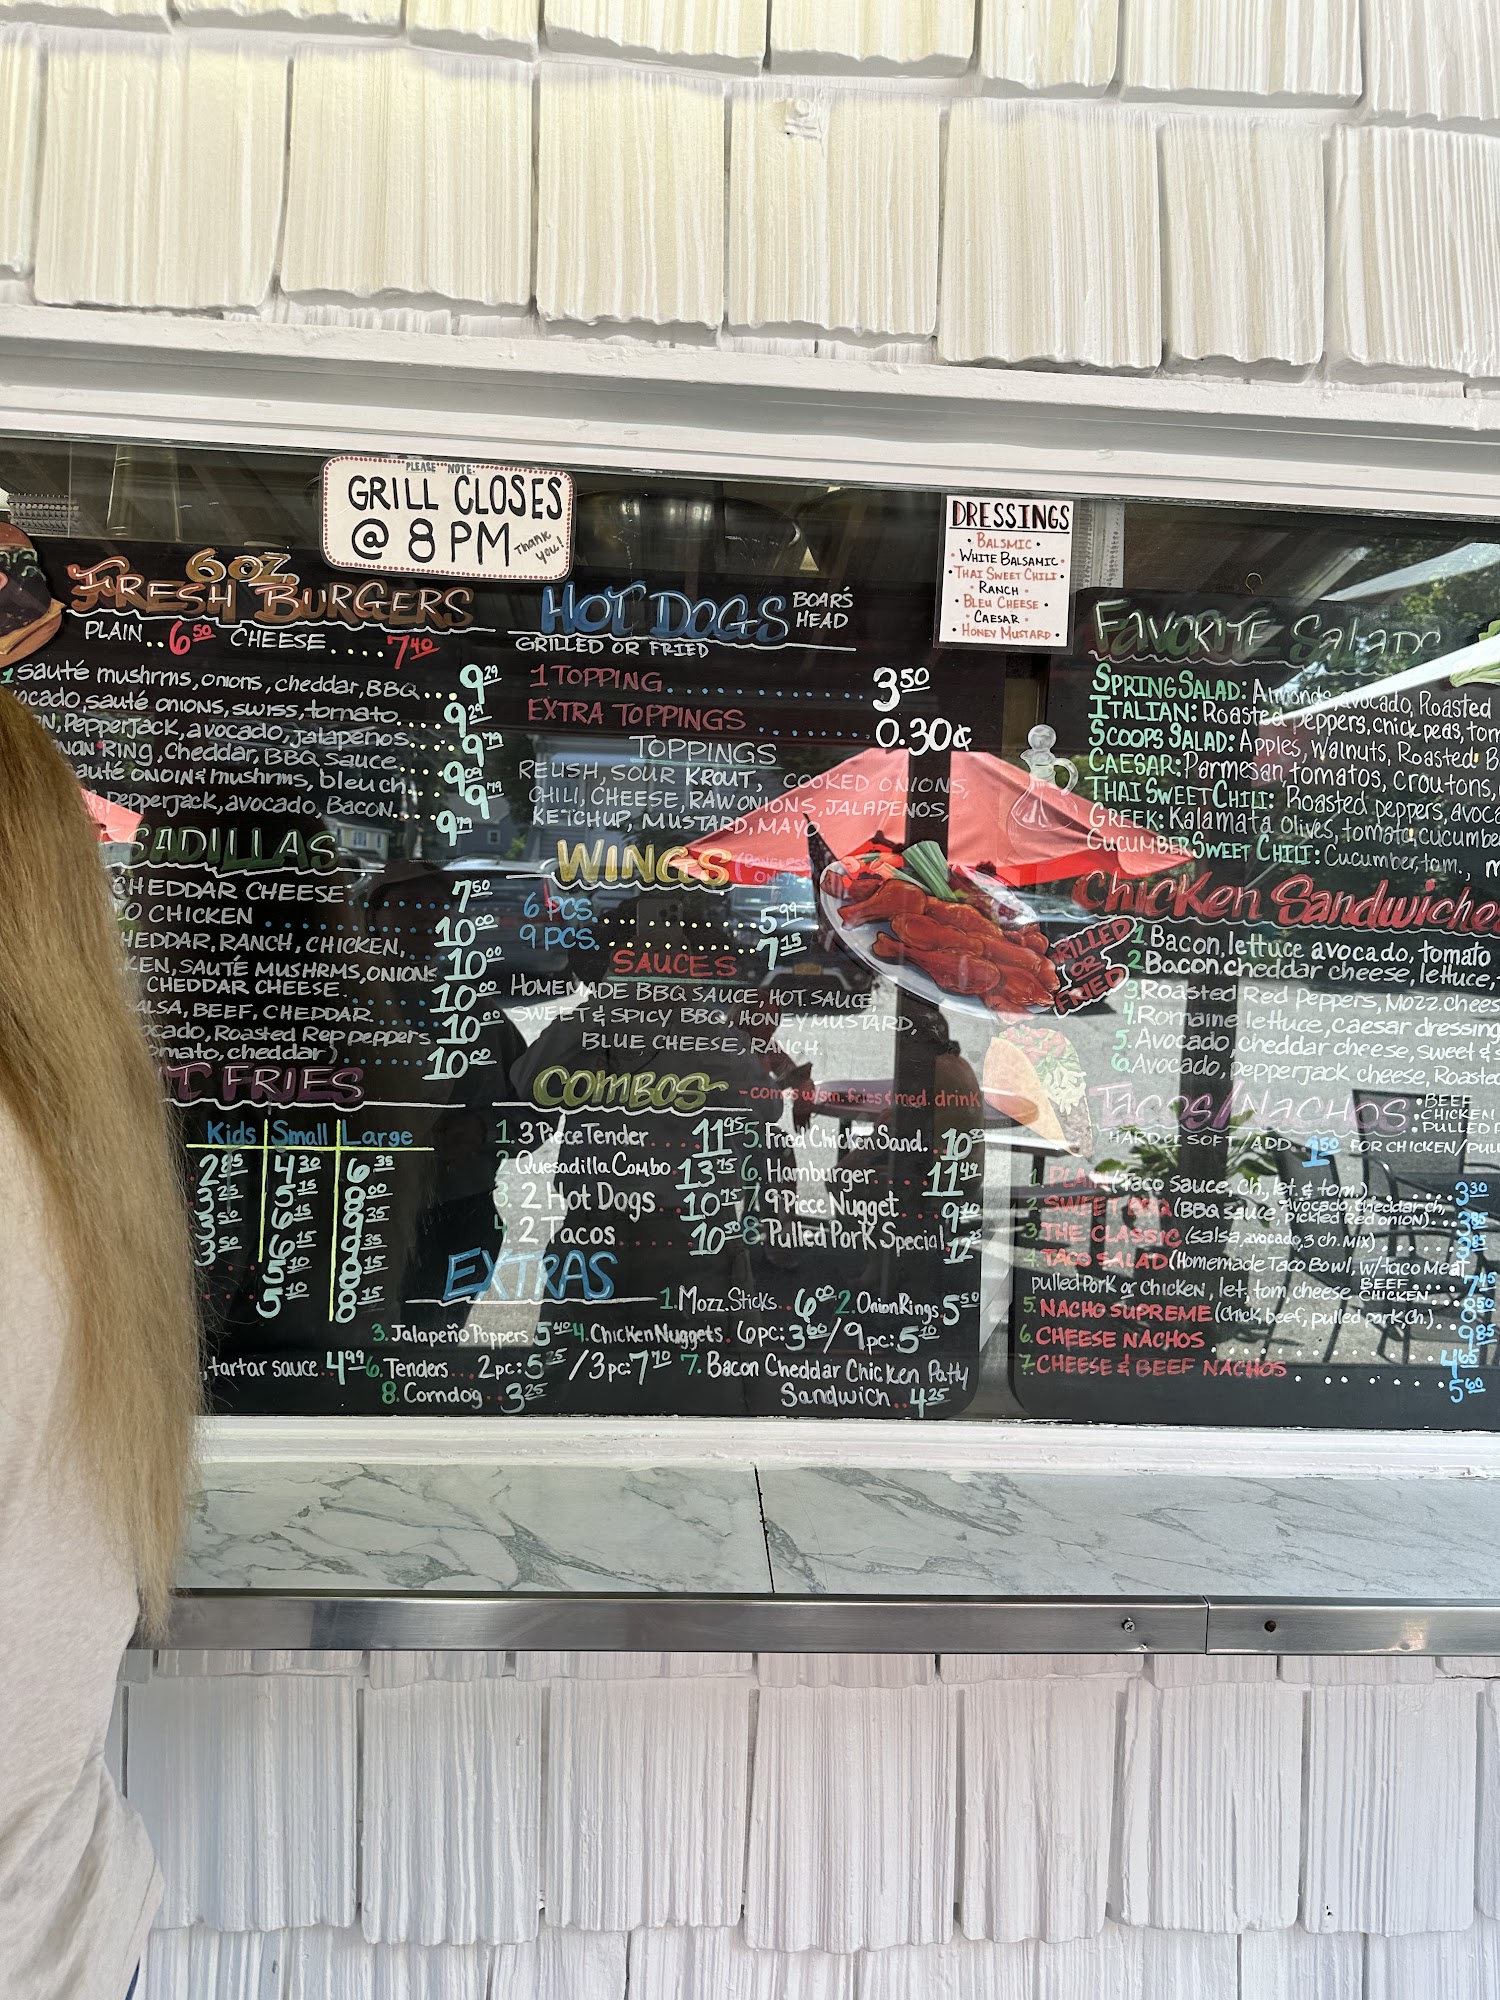 PLEASE NOTE:
GRILL CLOSES
@ 8 PM Thank you!
DRESSINGS
• BALSMIC •
• WHITE BALSAMIC •
• THAI SWEET CHILI •
• RANCH •
• BLEU CHEESE •
• CAESAR •
• HONEY MUSTARD •
6 OZ.
FRESH BURGERS
PLAIN..6.50 CHEESE....7.40
1 Sauté mushrms, onions, cheddar, BBQ...9.29
ocado, sauté onions, swiss, tomato....9.29
N, Pepperjack, avocado, jalapeños....9.79
Ring, Cheddar, BBQ Sauce....9.09
auté onoin & mushrms, bleu ch....9.79
Pepperjack, avocado, Bacon....9.79
SADILLAS
CHEDDAR CHEESE 7.50
O CHICKEN 10.00
HEDDAR, RANCH, CHICKEN, 10.00
KEN, SAUTÉ MUSHRMS, ONIONS
CHEDDAR CHEESE 10.00
ALSA, BEEF, CHEDDAR 10.00
ocado, Roasted Rep peppers
omato, cheddar) 10.00
T FRIES
Kids Small Large
2.85 4.30 6.35
3.25 5.15 8.00
3.50 6.15 9.35
3.50 6.15 9.35
5.10 8.15
5.10 8.15
HOT DOGS BOAR'S HEAD
GRILLED OR FRIED
1 TOPPING 3.50
EXTRA TOPPINGS 0.30¢
TOPPINGS
RELISH, SOUR KROUT, COOKED ONIONS,
CHILI, CHEESE, RAW ONIONS, JALAPENOS,
KETCHUP, MUSTARD, MAYO
WINGS (BONELESS ONLY)
6 PCS. 5.99
9 PCS. 7.15
SAUCES
HOMEMADE BBQ SAUCE, HOT SAUCE,
SWEET & SPICY BBQ, HONEY MUSTARD,
BLUE CHEESE, RANCH
COMBOS - comes w/ sm. fries & med. drink
1. 3 Piece Tender 11.95 5. Fried Chicken Sand. 10
2 Quesadilla Combo 13.75 6. Hamburger 11.49
3. 2 Hot Dogs 10.75 7 9 Piece Nugget 9.10
4. 2 Tacos 10.50 8. Pulled Pork Special 12.25
EXTRAS
1. Mozz. Sticks..6.00 2. Onion Rings. 5.50
3. Jalapeño Poppers 5.40 4. Chicken Nuggets. 6pc: 3.60 / 9pc: 5.10
, tartar sauce 4.99 6. Tenders... 2pc: 5.25 / 3pc: 7.70 7. Bacon Cheddar Chicken Patty
8. Corndog..3.25 Sandwich..4.25
FAVORITE Salads
SPRING SALAD: Almonds, avocado, Roasted
ITALIAN: Roasted Peppers, chick peas, tom
SCOOPS SALAD: Apples, Walnuts, Roasted B
CAESAR: Parmesan, tomatos, Croutons,
THAI SWEET CHILI: Roasted peppers, avoca
GREEK: Kalamata Olives, tomato, cucumbe
CUCUMBER SWEET CHILI: Cucumber, tom., m
Chicken Sandwiche
GRILLED OR FRIED
1 Bacon, lettuce avocado, tomato
2 Bacon, cheddar cheese, lettuce,
3. Roasted Red Peppers, Mozz. chees
4. Romaine lettuce, caesar dressing
5. Avocado, cheddar cheese, sweet & s
6. Avocado, pepperjack cheese, Roasted
TACOS/NACHOS • BEEF
• CHICKEN
• PULLED P
HARD or SOFT / ADD 1.50 FOR CHICKEN/PULL
1. PLAIN (Taco Sauce, ch., let. & tom.) 3.30
2. SWEET BBQ (BBQ Sauce, Avocado, cheddar ch, Pickled Red onion)... 3.85
3. THE CLASSIC (salsa, avocado, 3 ch. MIX) 3.85
4. TACO SALAD (Homemade Taco Bowl, w/ taco Meat,
pulled Pork or chicken, let, tom, cheese BEEF 7.45
CHICKEN 8.50
5. NACHO SUPREME (chick, beef, pulled pork, Ch.). 9.85
6. CHEESE NACHOS
7. CHEESE & BEEF NACHOS 5.60